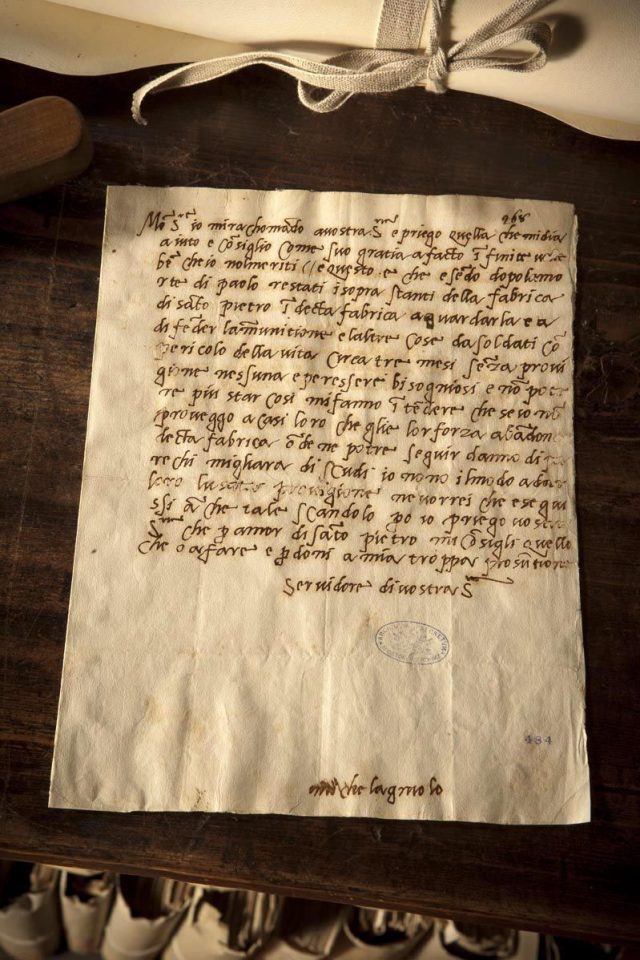 968
Mo S.re io mirachomādo avostra S.re e priego quella che midia
aiuto e cōsiglio come suo gratia afatto īfinite
bēcheio nolmeriti e questo e che esēdo dopolamo
rte di paolo restati isopra stanti della fabrica
di sāto pietro ī decta fabrica aguardarla e a
difēder lamunitione elaltre cose dasoldati cō
pericolo della vita circa tre mesi sēza provi
gione nessuna e peressere bisogniosi e nō pote
re piu star cosi mifanno ītēdere che seio nō
proveggo acasi loro che glie lor forza abādona
decta fabrica ōde ne potre seguir danno di pa
rechi migliara di scudi io nono ilmodo a dar
loro provigione nevorrei che segui
ssi ā che tale scandolo po io priego vostra
S che p amor di sāto pietro mi cōsigli quello
che o afare e pdoni a mia troppa prosūtione
servidore di vostra S
484
michelagniolo